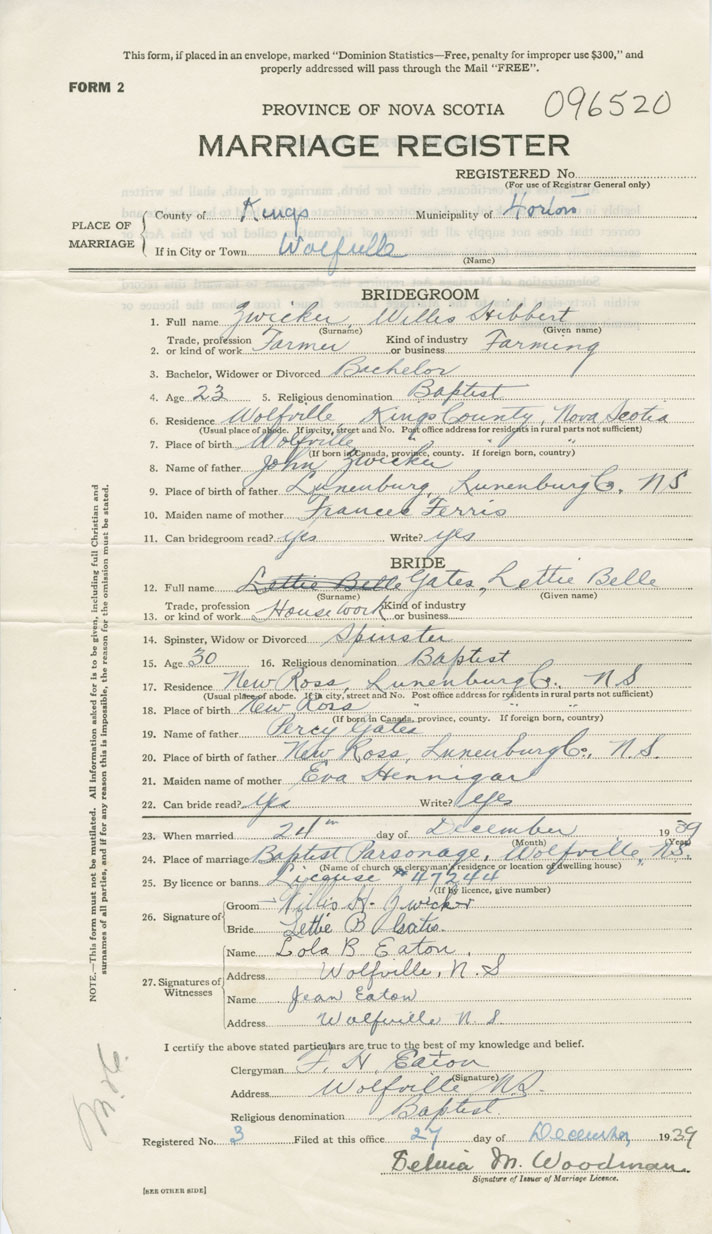 This form, if placed in an envelope, marked "Dominion Statistics—Free, penalty for improper use $300," and
properly addressed will pass through the Mail "FREE".
FORM 2
PROVINCE OF NOVA SCOTIA 096520
MARRIAGE REGISTER
REGISTERED No.
(For use of Registrar General only)
PLACE OF MARRIAGE
County of Kings Municipality of Horton
If in City or Town Wolfville
(Name)
BRIDEGROOM
1. Full name Zwicker, Willis Hibbert
(Surname) (Given name)
2. Trade, profession or kind of work Farmer Kind of industry or business Farming
3. Bachelor, Widower or Divorced Bachelor
4. Age 23 5. Religious denomination Baptist
6. Residence Wolfville, Kings County, Nova Scotia
(Usual place of abode. If in city, street and No. Post office address for residents in rural parts not sufficient)
7. Place of birth Wolfville " " "
(If born in Canada, province, county. If foreign born, country)
8. Name of father John Zwicker
9. Place of birth of father Lunenburg, Lunenburg Co. NS
10. Maiden name of mother Frances Ferris
11. Can bridegroom read? yes Write? yes
BRIDE
12. Full name Lettie Belle Gates, Lettie Belle
(Surname) (Given name)
13. Trade, profession or kind of work Housework Kind of industry or business
14. Spinster, Widow or Divorced Spinster
15. Age 30 16. Religious denomination Baptist
17. Residence New Ross, Lunenburg Co. NS
(Usual place of abode. If in city, street and No. Post office address for residents in rural parts not sufficient)
18. Place of birth New Ross " " "
(If born in Canada, province, county. If foreign born, country)
19. Name of father Percy Gates
20. Place of birth of father New Ross, Lunenburg Co., N.S.
21. Maiden name of mother Eva Hennigar
22. Can bride read? yes Write? yes
23. When married 24th day of December 1939
(Month) (Year)
24. Place of marriage Baptist Parsonage, Wolfville, N.S.
(Name of church or clergyman's residence or location of dwelling house)
25. By licence or banns License #47244
(If by licence, give number)
26. Signature of
Groom Willis H. Zwicker
Bride Lettie B Gates.
27. Signatures of Witnesses
Name Lola B. Eaton.
Address Wolfville, N.S
Name Jean Eaton
Address Wolfville N.S
I certify the above stated particulars are true to the best of my knowledge and belief.
Clergyman F. H. Eaton
(Signature)
Address Wolfville N.S.
Religious denomination Baptist
Registered No. 3 Filed at this office 27 day of December 1939
M. Woodman.
Signature of Issuer of Marriage Licence.
[SEE OTHER SIDE]
NOTE.—This form must not be mutilated. All information asked for is to be given, including full Christian and
surnames of all parties, and if for any reason this is impossible, the reason for the omission must be stated.